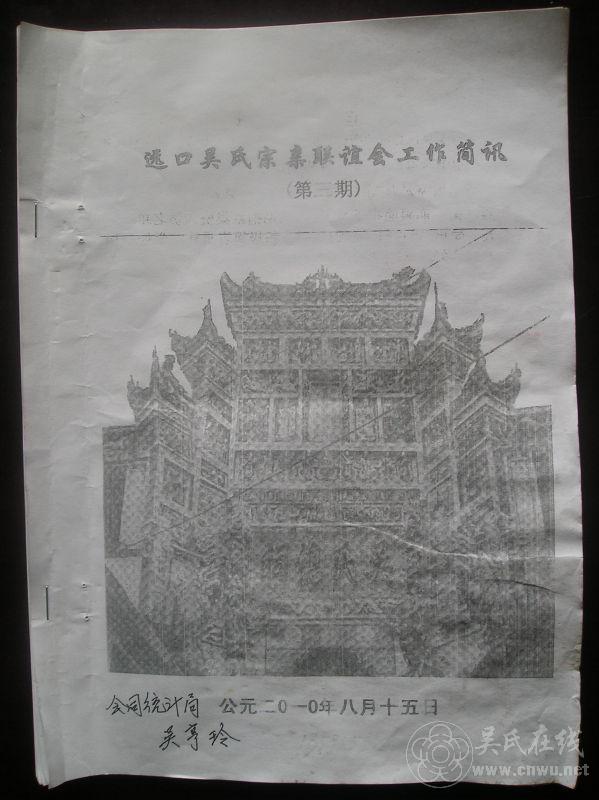 远口吴氏宗亲联谊会工作简讯
(第三期)
会同统计局
吴亨玲
公元二0一0年八月十五日
吴氏在线
www.cnwu.net